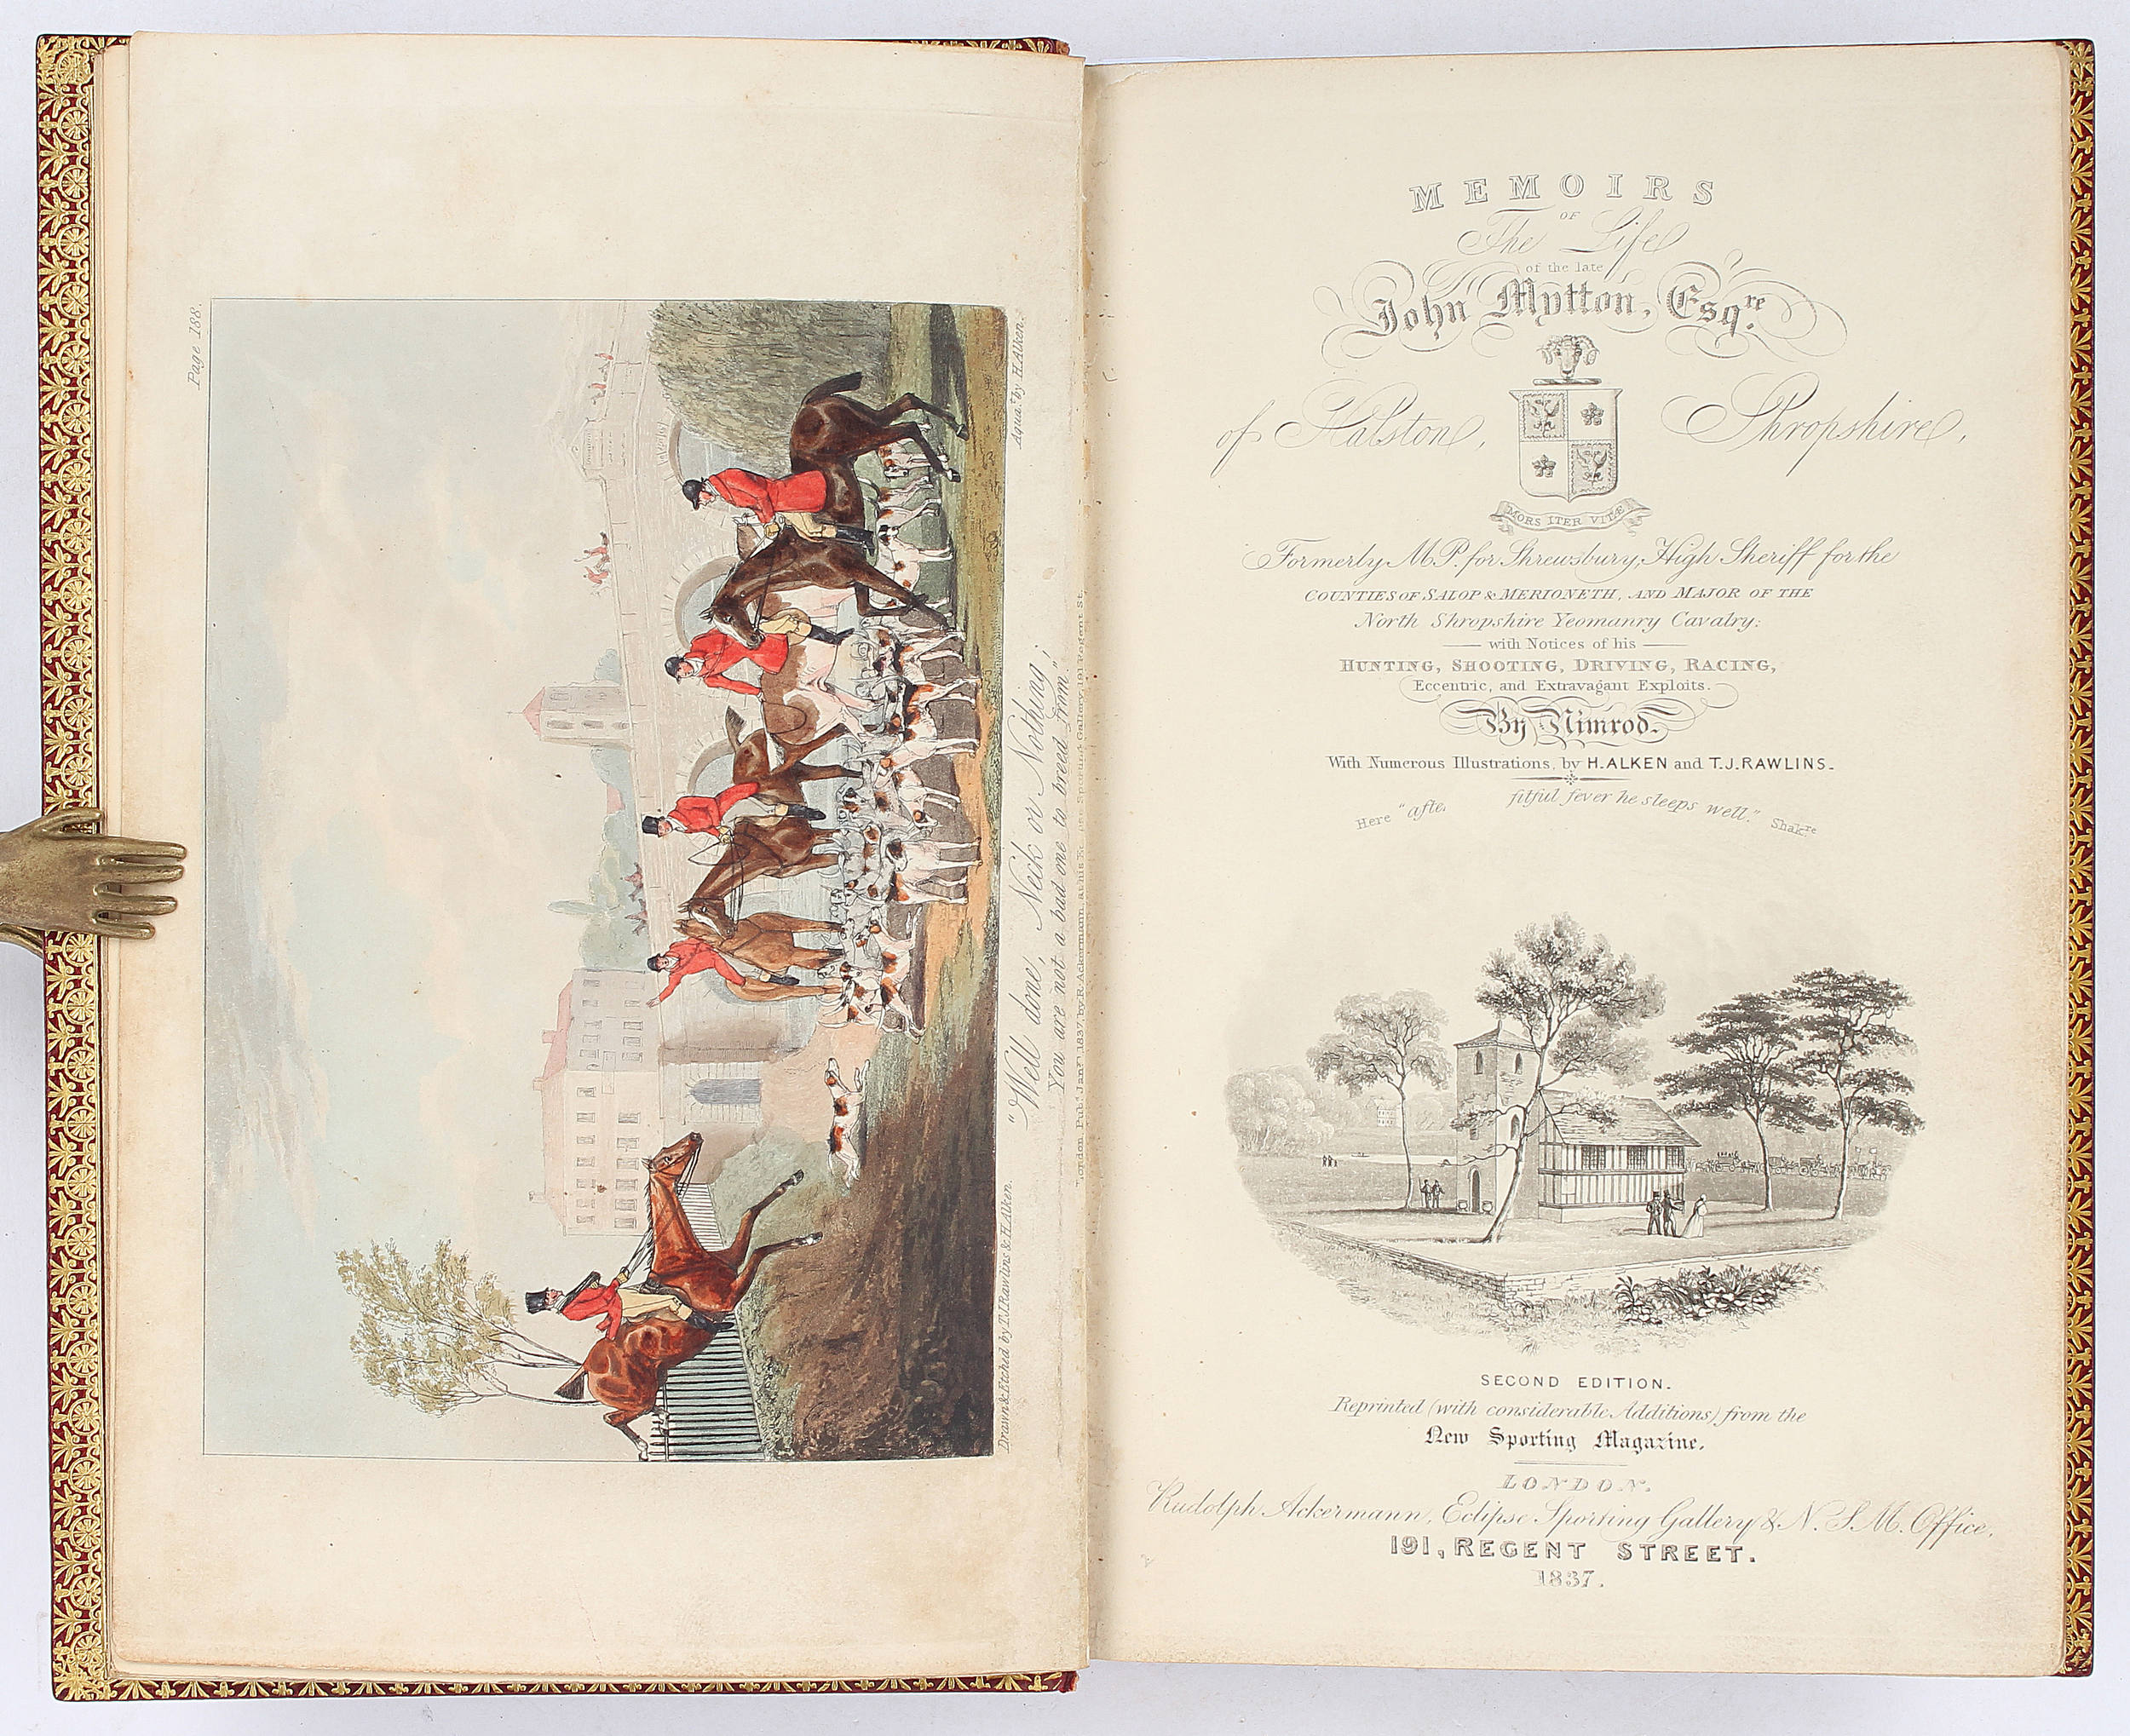 Page 188.
Aquat. by H. Alken.
Drawn & Etched by T.J. Rawlins & H. Alken.
"Well done, Neck or Nothing;
You are not a bad one to breed from"!
London, Pub. Jany. 1837, by R. Ackermann, at his Sporting Gallery, 191 Regent St.
MEMOIRS
OF
The Life
of the late
John Mytton, Esqre.
of Halston, Shropshire,
MORS ITER VITÆ
Formerly M.P. for Shrewsbury, High Sheriff for the
COUNTIES OF SALOP & MERIONETH, AND MAJOR OF THE
North Shropshire Yeomanry Cavalry:
with Notices of his
HUNTING, SHOOTING, DRIVING, RACING,
Eccentric, and Extravagant Exploits.
By Nimrod.
With Numerous Illustrations, by H. ALKEN and T. J. RAWLINS.
Here "after fitful fever he sleeps well." Shakre
SECOND EDITION.
Reprinted (with considerable Additions) from the
New Sporting Magazine.
LONDON.
Rudolph Ackermann, Eclipse Sporting Gallery & N. S. M. Office,
191, REGENT STREET.
1837.